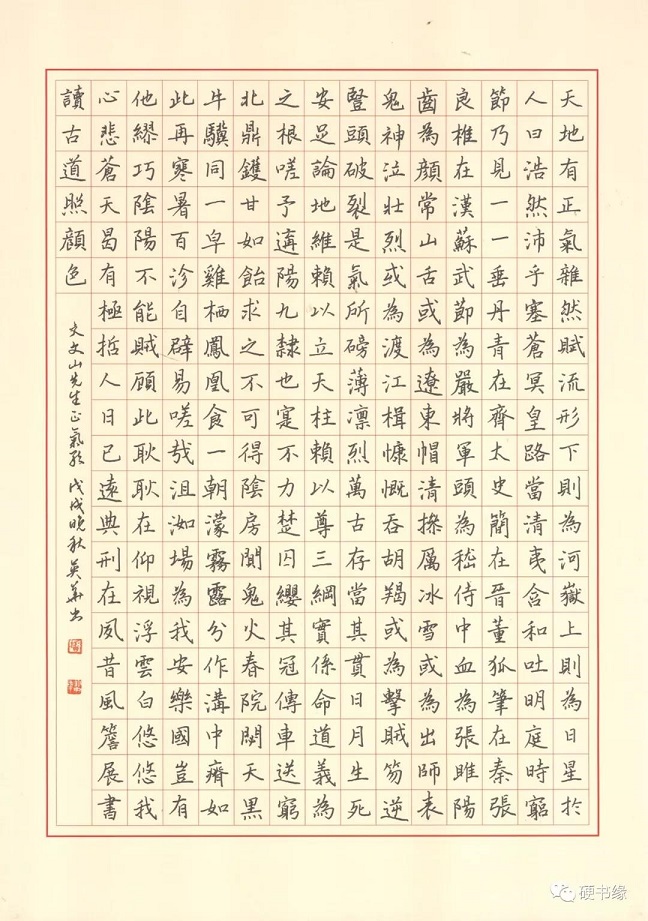 天地有正氣雜然賦流形下則為河嶽上則為日星於
人曰浩然沛乎塞蒼冥皇路當清夷含和吐明庭時窮
節乃見一一垂丹青在齊太史簡在晉董狐筆在秦張
良椎在漢蘇武節為嚴將軍頭為嵇侍中血為張睢陽
齒為顏常山舌或為遼東帽清操厲冰雪或為出師表
鬼神泣壯烈或為渡江楫慷慨吞胡羯或為擊賊笏逆
豎頭破裂是氣所磅薄凛烈萬古存當其貫日月生死
安足論地維賴以立天柱賴以尊三綱實係命道義為
之根嗟予遘陽九隸也寔不力楚囚纓其冠傳車送窮
北鼎鑊甘如飴求之不可得陰房闃鬼火春院閟天黑
牛驥同一皁雞栖鳳凰食一朝濛霧露分作溝中瘠如
此再寒暑百沴自辟易嗟哉沮洳場為我安樂國豈有
他繆巧陰陽不能賊顧此耿耿在仰視浮雲白悠悠我
心悲蒼天曷有極哲人日已遠典刑在夙昔風簷展書
讀古道照顏色
文文山先生正氣歌 戊戌晚秋 英華书
硬书缘